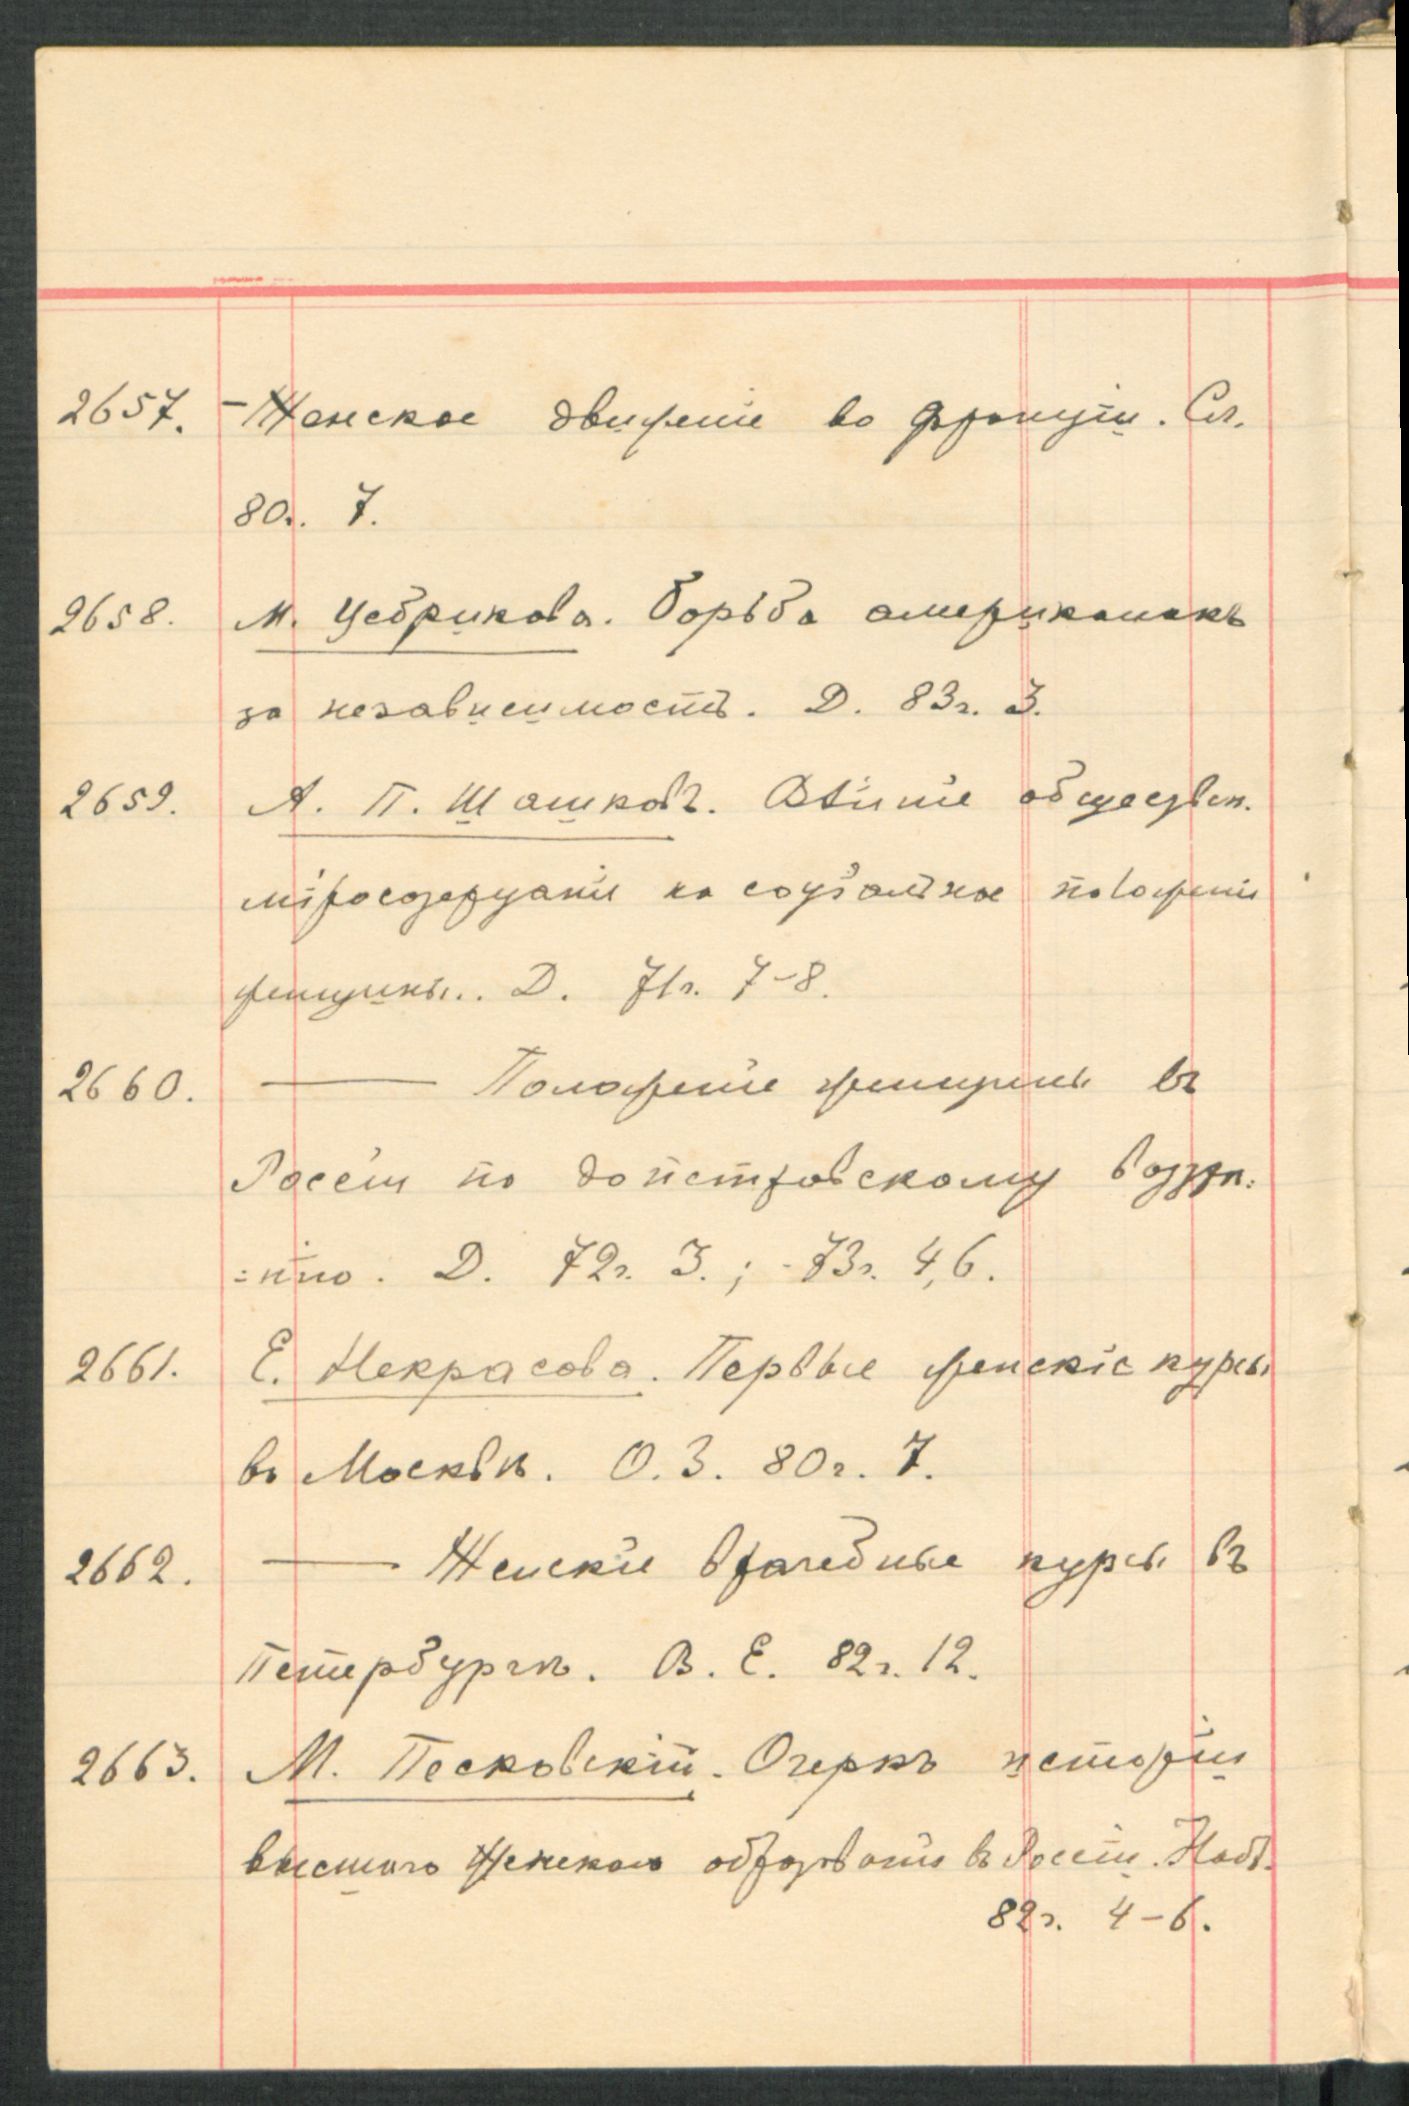 2657. – Женское движеніе во Франціи. Сл.
80г. 7.
2658. М. Цебрикова. Борьба американокъ
за независимость. Д. 83г. 3.
2659. А. П. Шашковъ. Вліяніе обществен.
міросозерцанія на соціальное положенія
женщины.. Д. 71г. 7–8.
2660. —— Положеніе женщины въ
Россіи по допетровскому воззрѣ=
=нію. Д. 72г. 3.; -73г. 4,6.
2661. Е. Некрасова. Первые женскіе курсы
въ Москвѣ. О.З. 80г. 7.
2662. —— Женскіе врачебные курсы въ
Петербургѣ. В. Е. 82г. 12.
2663. М. Песковскій. Очеркъ исторіи
высшаго женскаго образованія въ Россіи. Набл.
82г. 4–6.